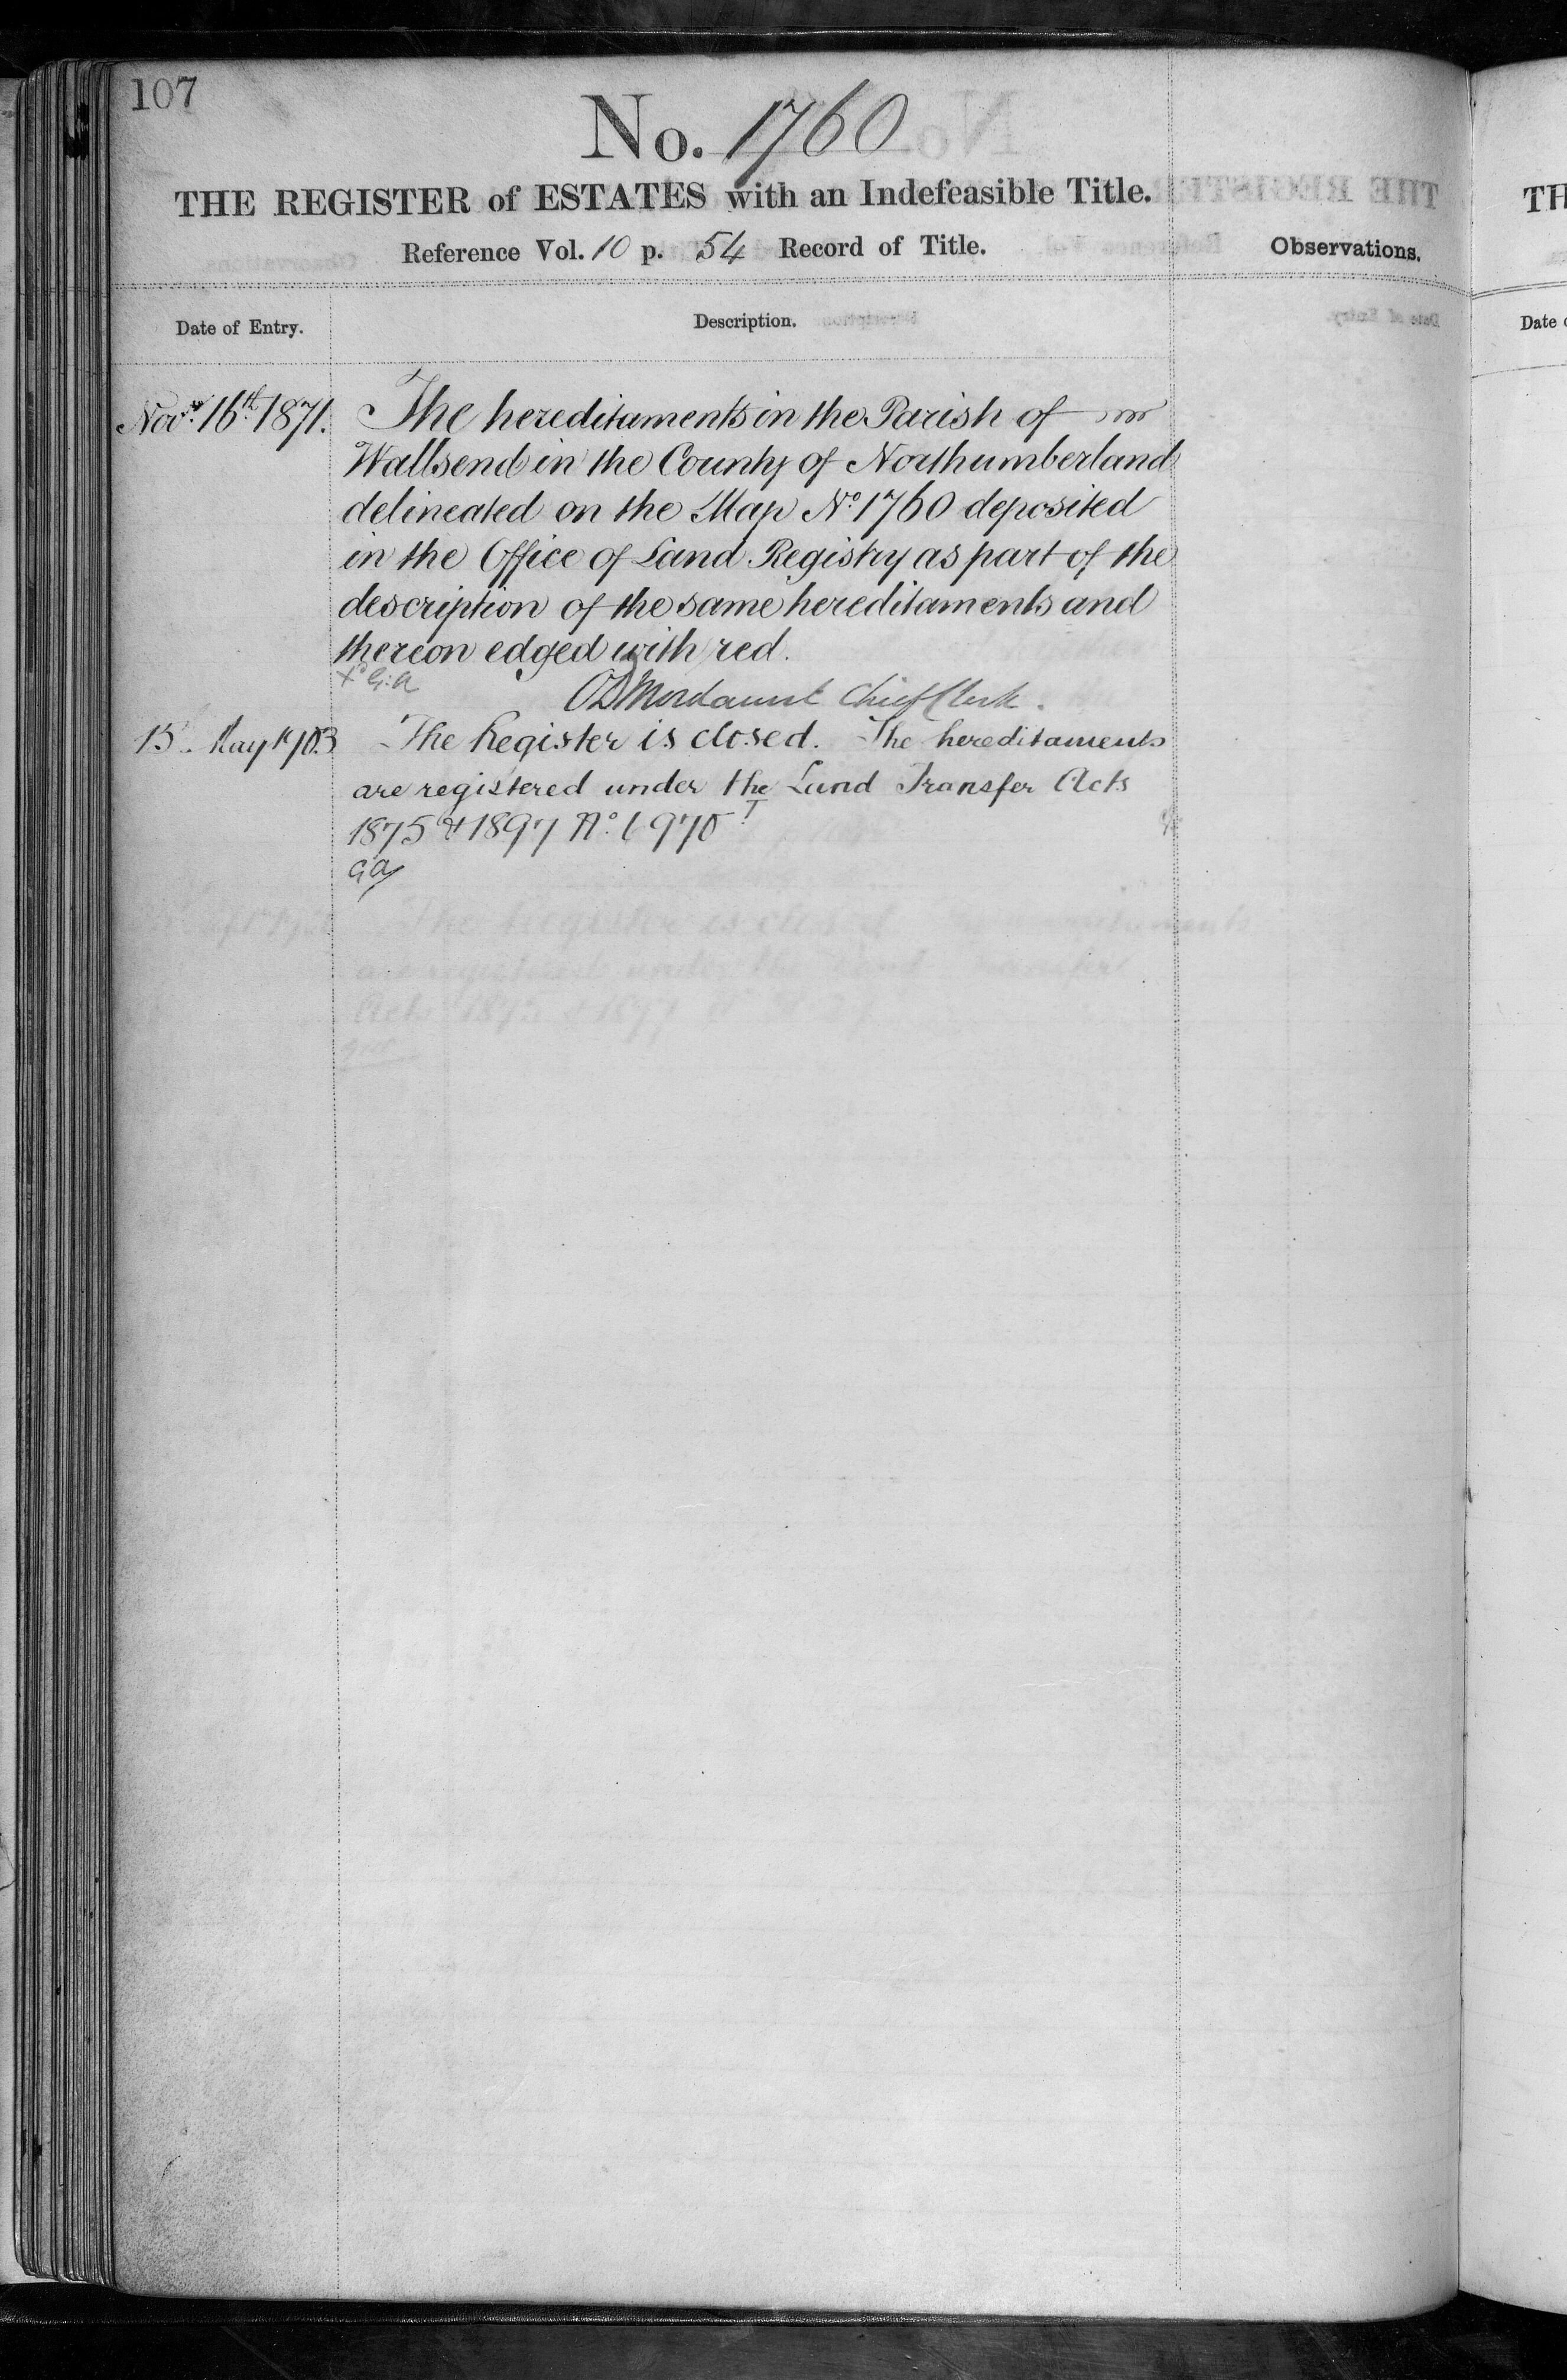 107
No. 1760
THE REGISTER of ESTATES with an Indefeasible Title.
Reference Vol. 10 p. 54 Record of Title.
Observations.
Date of Entry.
Description.
Novr. 16th 1871.
The hereditaments in the Parish of
Wallsend in the County of Northumberland
delineated on the Map No. 1760 deposited
in the Office of Land Registry as part of the
description of the same hereditaments and
thereon edged with red.
G.A
Mordaunt Chief Clerk.
15 May 1903
The Register is closed. The hereditaments
are registered under the Land Transfer Acts
1875 & 1897 No. 6970
GA
TH
Date